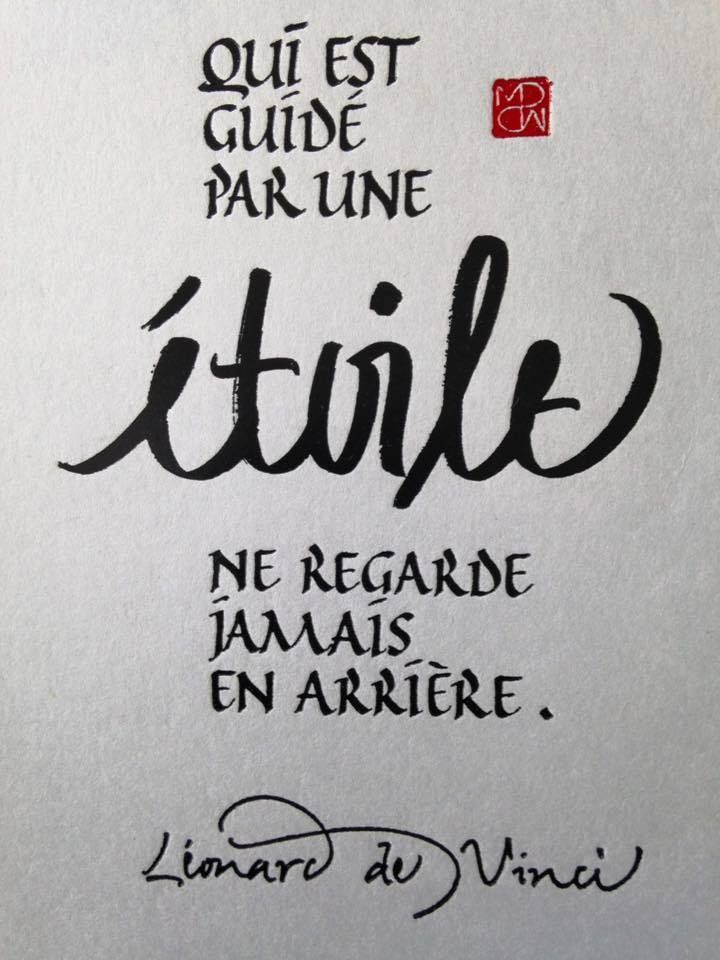 QUI EST
GUIDÉ
PAR UNE
étoile
NE REGARDE
JAMAIS
EN ARRIÈRE.
Léonard de Vinci